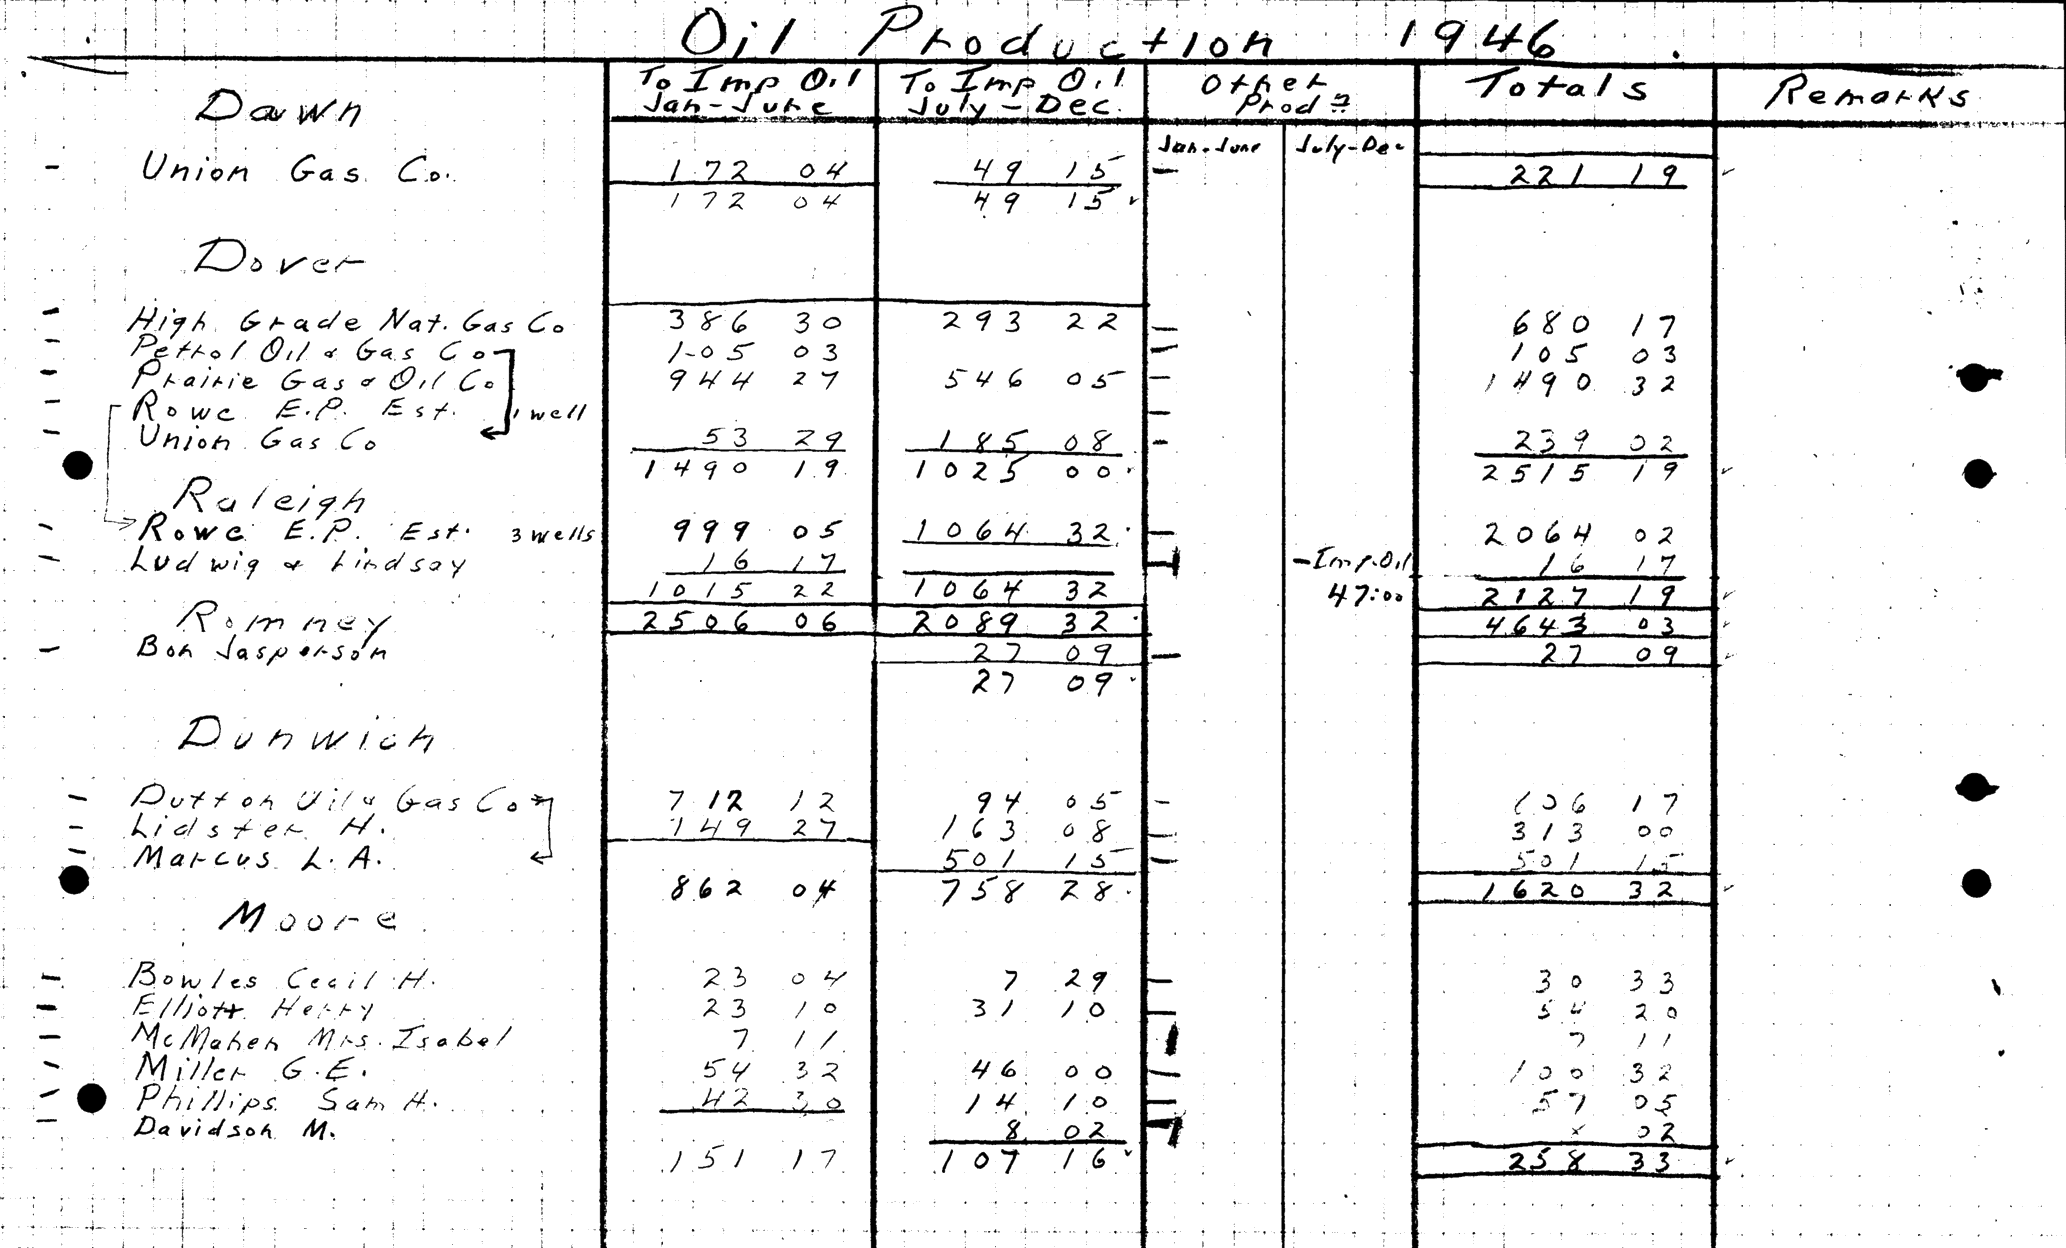 Oil Production 1946
To Imp Oil Jan-June To Imp Oil July-Dec. Other Prod n Totals Remarks
Dawn
Jan-June July-Dec
Union Gas Co. 172 04 49 15 - 221 19
172 04 49 15
Dover
High Grade Nat. Gas Co 386 30 293 22 - 680 17
Petrol Oil & Gas Co 105 03 - 105 03
Prairie Gas & Oil Co 944 27 546 05 - 1490 32
Rowe E.P. Est. 1 well -
Union Gas Co 53 29 185 08 - 239 02
1490 19 1025 00 2515 19
Raleigh
Rowe E.P. Est. 3 wells 999 05 1064 32 - 2064 02
Ludwig & Lindsay 16 17 - Imp. Oil 16 17
1015 22 1064 32 47:00 2127 19
Romney 2506 06 2089 32 4643 03
Bon Jasperson 27 09 - 27 09
27 09
Dunwich
Dutton Oil & Gas Co 712 12 94 05 - 806 17
Lidster H. 149 27 163 08 - 313 00
Marcus L. A. 501 15 - 501 15
862 04 758 28 1620 32
Moore
Bowles Cecil H. 23 04 7 29 - 30 33
Elliott Henry 23 10 31 10 - 54 20
McMahen Mrs. Isabel 7 11 7 11
Miller G.E. 54 32 46 00 - 100 32
Phillips Sam H. 42 30 14 10 - 57 05
Davidson M. 8 02 02
151 17 107 16 258 33